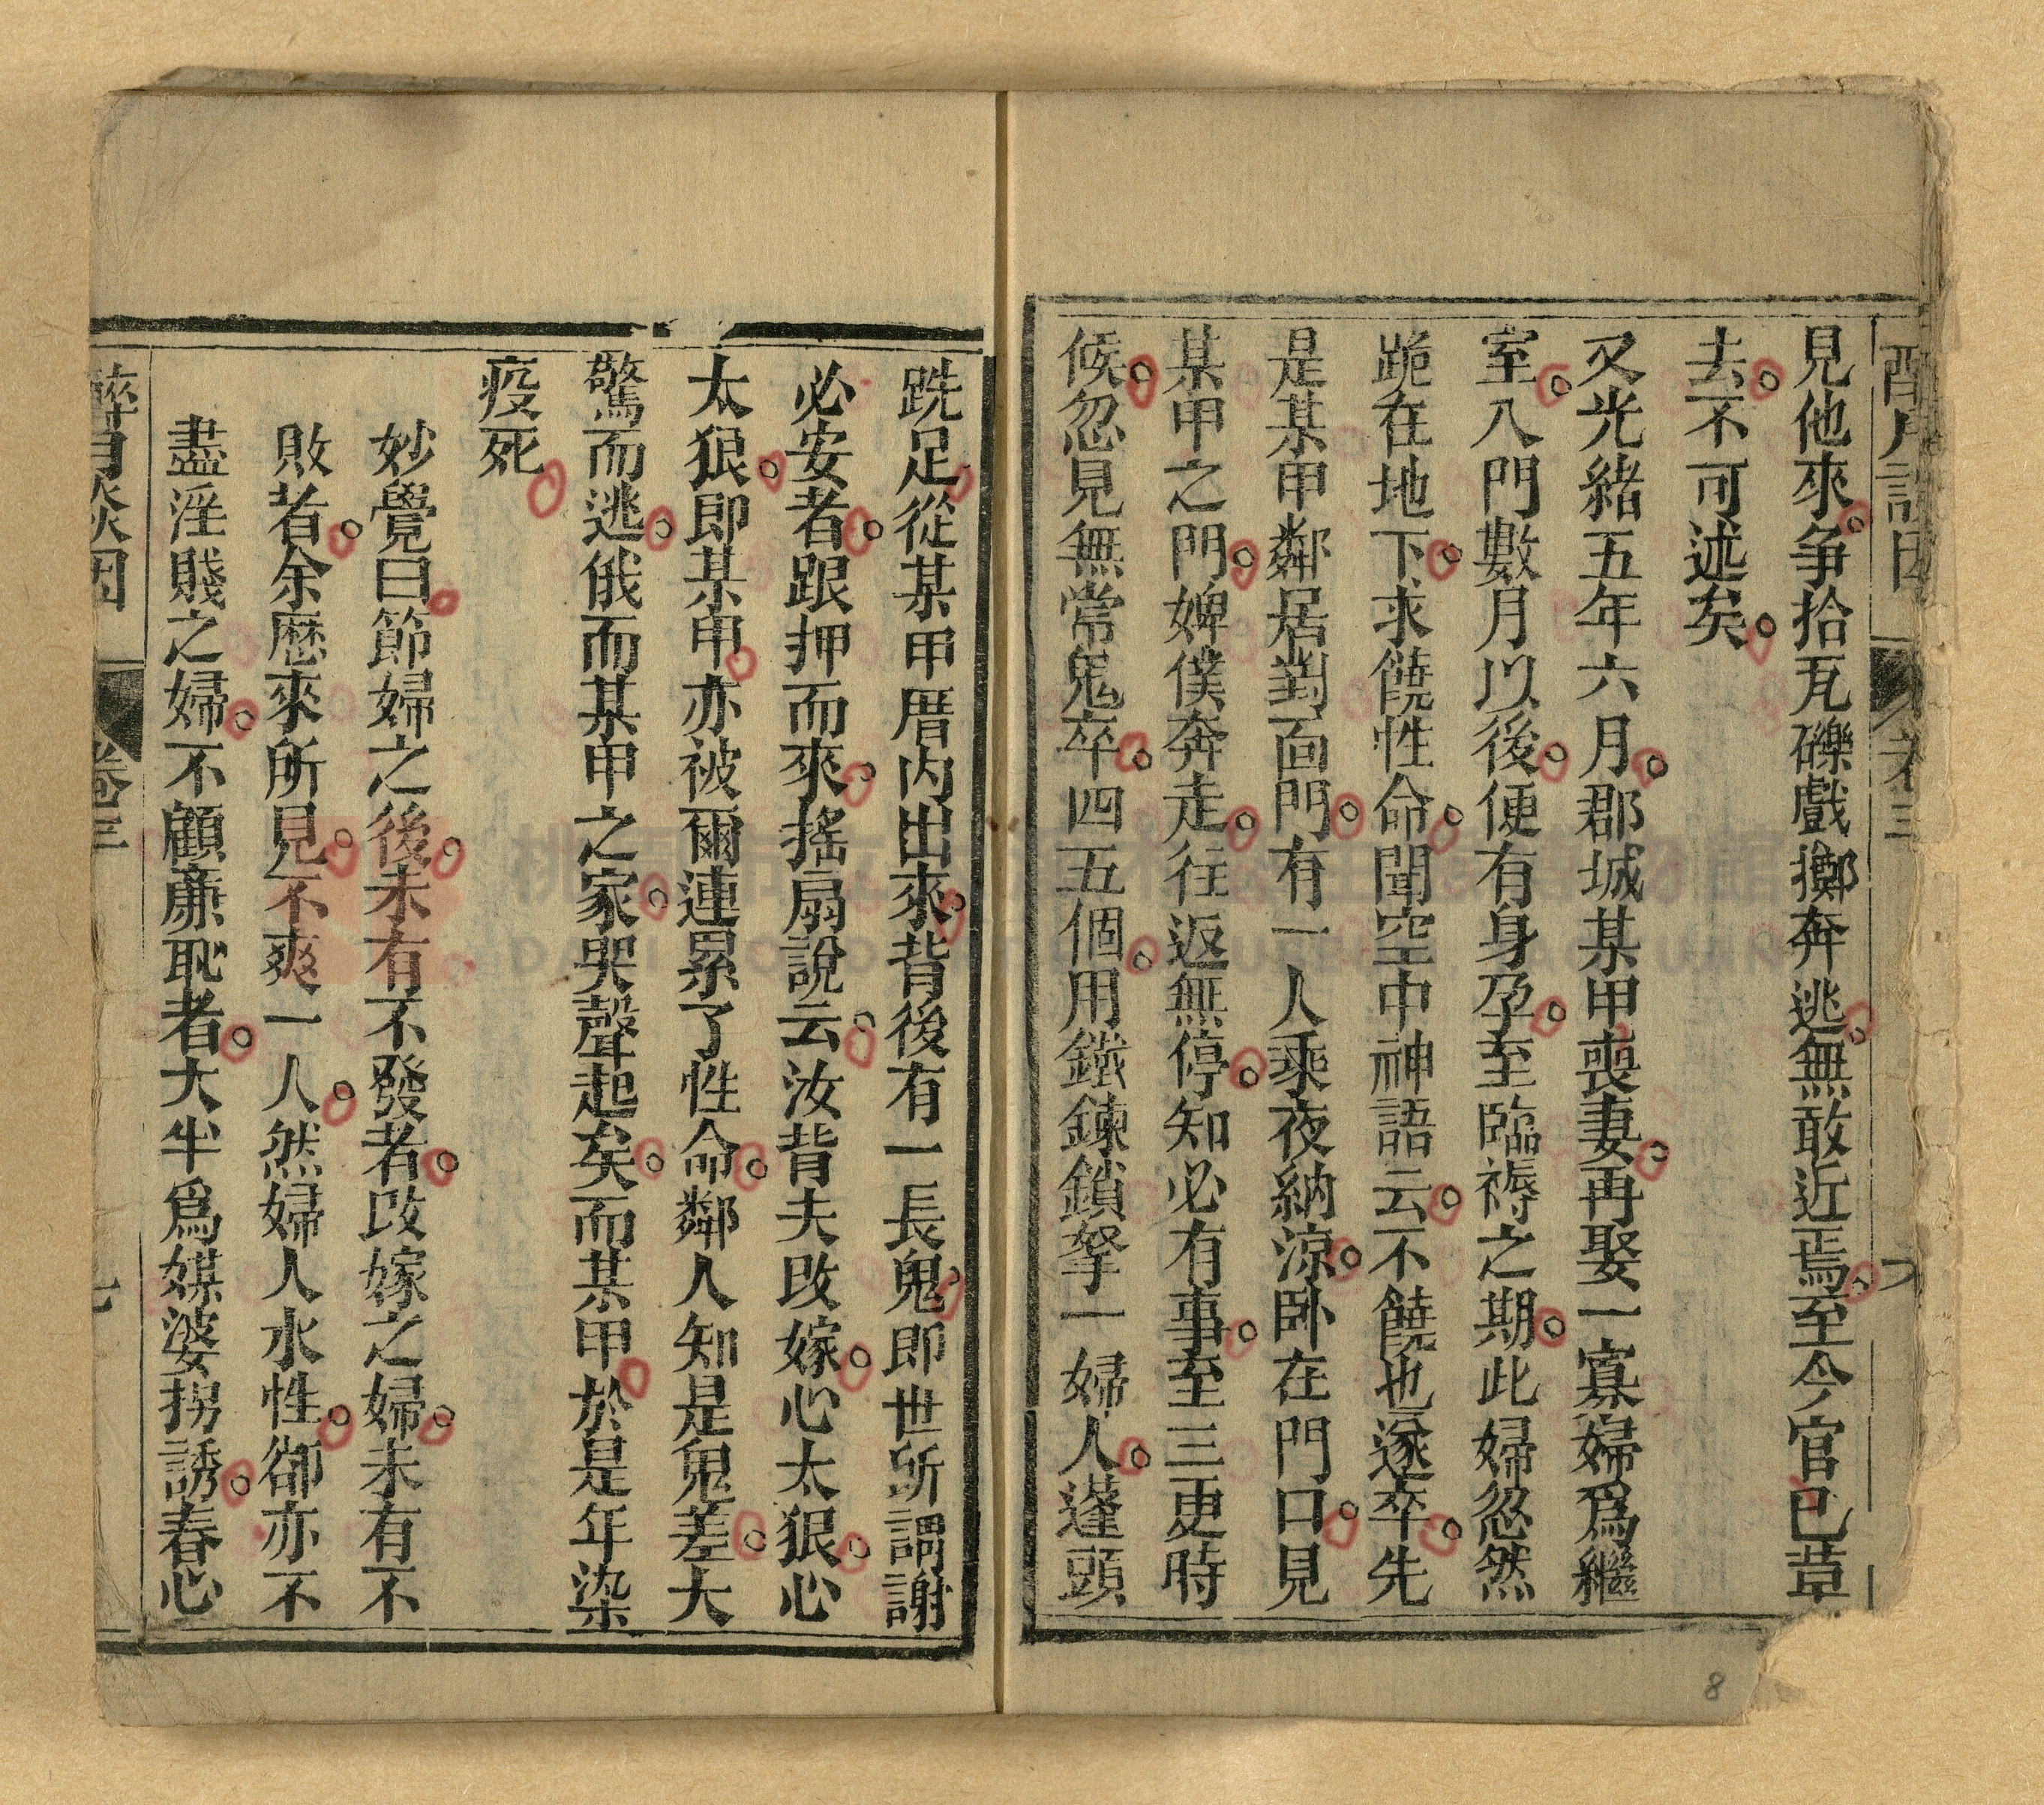 見他來爭拾瓦礫戲擲奔逃無敢近焉至今官已葺
去不可述矣
又光緒五年六月郡城某甲喪妻再娶一寡婦爲繼
室入門數月以後便有身孕至臨褥之期此婦忽然
跪在地下求饒性命聞空中神語云不饒也遂卒先
是某甲鄰居對面門有一人乘夜納涼卧在門口見
某甲之門婢僕奔走往返無停知必有事至三更時
候忽見無常鬼卒四五個用鐵鍊鎖拏一婦人蓬頭
跣足從某甲厝内出來背後有一長鬼即世所謂謝
必安者跟押而來搖扇說云汝背夫改嫁心太狠心
太狠即某甲亦被爾連累了性命鄰人知是鬼差大
驚而逃俄而某甲之家哭聲起矣而某甲於是年染
疫死
妙覺曰節婦之後未有不發者改嫁之婦未有不
敗者余歷來所見不爽一人然婦人水性卻亦不
盡淫賤之婦不顧廉恥者大半爲媒婆拐誘春心
醉月談因 卷三 七